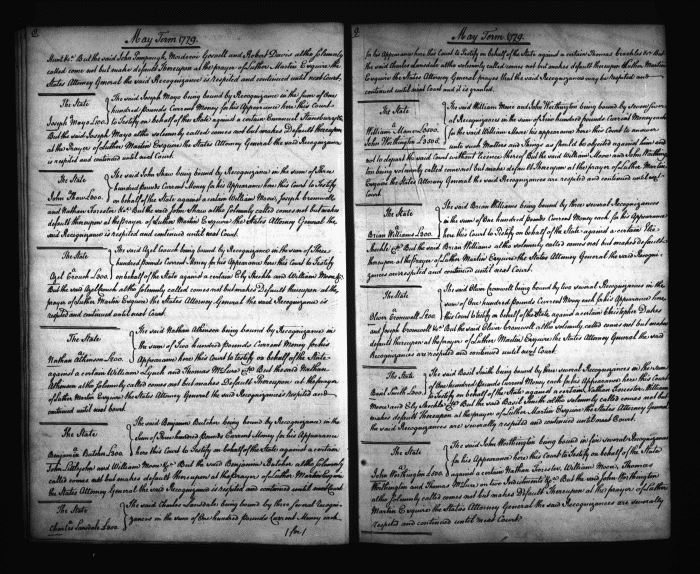 May Term 1779.
Hand &c. But the said John Pumphrey, Mordecai Gosnell and Robert Davis altho solemnly
called come not but make default thereupon at the prayer of Luther Martin Esquire the States
Attorney General the said Recognizance is respited and continued until next Court.
The State
Joseph Mayo £100.
The said Joseph Mayo being bound by Recognizance in the sum of One
hundred pounds Current Money for his Appearance here this Court
to Testify on behalf of the State against a certain Emanuel Stansbury &c.
But the said Joseph Mayo altho solemnly called comes not but makes Default thereupon
at the Prayer of Luther Martin Esquire the States Attorney General the said Recognizance
is respited and continued until next Court.
The State
John Shaw £100.
The said John Shaw being bound by Recognizance in the sum of
hundred pounds Current Money for his Appearance here this Court to Testify
on behalf of the State against a certain William Moore, Joseph Cromwell
and Nathan Forrester &c. But the said John Shaw altho solemnly called comes not but makes
default thereupon at the prayer of Luther Martin Esquire the States Attorney General the
said Recognizance is respited and continued until next Court.
The State
The said being bound by Recognizance in the Sum of
hundred pounds Current Money for his Appearance here this Court to Testify
on behalf of the State against a certain and William Moore &c.
But the said altho solemnly called comes not but makes Default thereupon at the
prayer of Luther Martin Esquire the States Attorney General the said Recognizance is
respited and continued until next Court.
The State
Nathan Atkinson £200.
The said Nathan Atkinson being bound by Recognizance in
the sum of Two hundred pounds Current Money for his
Appearance here this Court to Testify on behalf of the State
against a certain William Lynch and Thomas &c. But the said Nathan
Atkinson altho solemnly called comes not but makes Default Thereupon at the prayer
of Luther Martin Esquire the States Attorney General the said Recognizance is respited and
continued until next Court.
The State
Benjamin Butcher £300.
The said Benjamin Butcher being bound by Recognizance in the
Sum of Three hundred Pounds Current Money for his Appearance
here this Court to Testify on behalf of the State against a certain
John and William Moore &c. But the said Benjamin Butcher altho solemnly
called comes not but makes default thereupon at the prayer of Luther Martin Esquire
the States Attorney General the said Recognizance is respited and continued until next Court.
The State
Charles Lansdale £100.
The said Charles Lansdale being bound by three several Recogni-
zances in the sum of One hundred pounds Current Money each
(for)
May Term 1779.
for his Appearance here this Court to Testify on behalf of the State against a certain Thomas &c. But
the said Charles Lansdale altho solemnly called comes not but makes default thereupon Luther Martin
Esquire the States Attorney General prays that the said Recognizances may be respited and
continued until next Court and it is granted.
The State
William Moore
John Worthington
The said William Moore and John Worthington being bound by
Recognizances in the sum of five hundred Pounds Current Money each
for the said William Moore his appearance here this Court to answer
unto such Matters and Things as should be objected against him and
not to depart the said Court without Licence thereof But the said William Moore and John Worthing-
ton being solemnly called comes not but makes default thereupon at the prayer of Luther Martin
Esquire the States Attorney General the said Recognizances are respited and continued until next
Court.
The State
Brian Williams £100.
The said Brian Williams being bound by three several Recognizances
in the sum of One hundred pounds Current Money each for his Appearance
here this Court to Testify on behalf of the State against a certain
&c. But the said Brian Williams altho solemnly called comes not but makes default
thereupon at the prayer of Luther Martin Esquire the States Attorney General the said Recogni-
zances are respited and continued until next Court.
The State
Oliver Cromwell £100.
The said Oliver Cromwell being bound by two several Recognizances in the
sum of One hundred pounds Current Money each for his Appearance here
this Court to testify on behalf of the State against a certain Christopher Dukes
and Joseph Cromwell &c. But the said Oliver Cromwell altho solemnly called comes not but makes
default thereupon at the prayer of Luther Martin Esquire the States Attorney General the said
Recognizances are respited and continued until next Court.
The State
Basil Smith £100.
The said Basil Smith being bound by three several Recognizances in the sum
of One hundred pounds Current Money each for his Appearance here this Court
to Testify on behalf of the State against a certain Nathan Forrester, William
Moore and &c. But the said Basil Smith altho solemnly called comes not but
makes default Thereupon at the prayer of Luther Martin Esquire the States Attorney General
the said Recognizances are severally respited and continued until next Court.
The State
John Worthington £100.
The said John Worthington being bound in several Recognizances
for his Appearance here this Court to Testify on behalf of the State
against a certain Nathan Forrester, William Moore, Thomas
Worthington and Thomas on two Indictments &c. But the said John Worthington
altho solemnly called comes not but makes Default Thereupon at the prayer of Luther
Martin Esquire the States Attorney General the said Recognizances are severally
respited and continued until next Court.